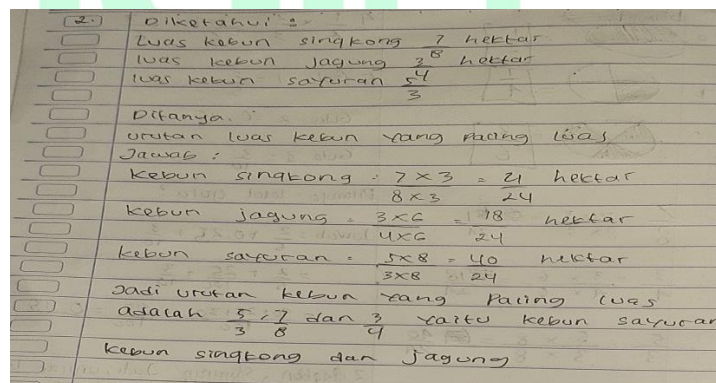 2. Diketahui :
Luas kebun singkong 7/8 hektar
luas kebun jagung 3/4 hektar
luas kebun sayuran 5/3
Ditanya.
urutan luas kebun yang paling luas
Jawab :
Kebun singkong : 7 x 3 / 8 x 3 = 21/24 hektar
kebun jagung = 3x6 / 4x6 = 18/24 hektar
kebun sayuran = 5x8 / 3x8 = 40/24 hektar
Jadi urutan kebun yang paling luas
adalah 5/3, 7/8 dan 3/4 yaitu kebun sayuran
kebun singkong dan jagung